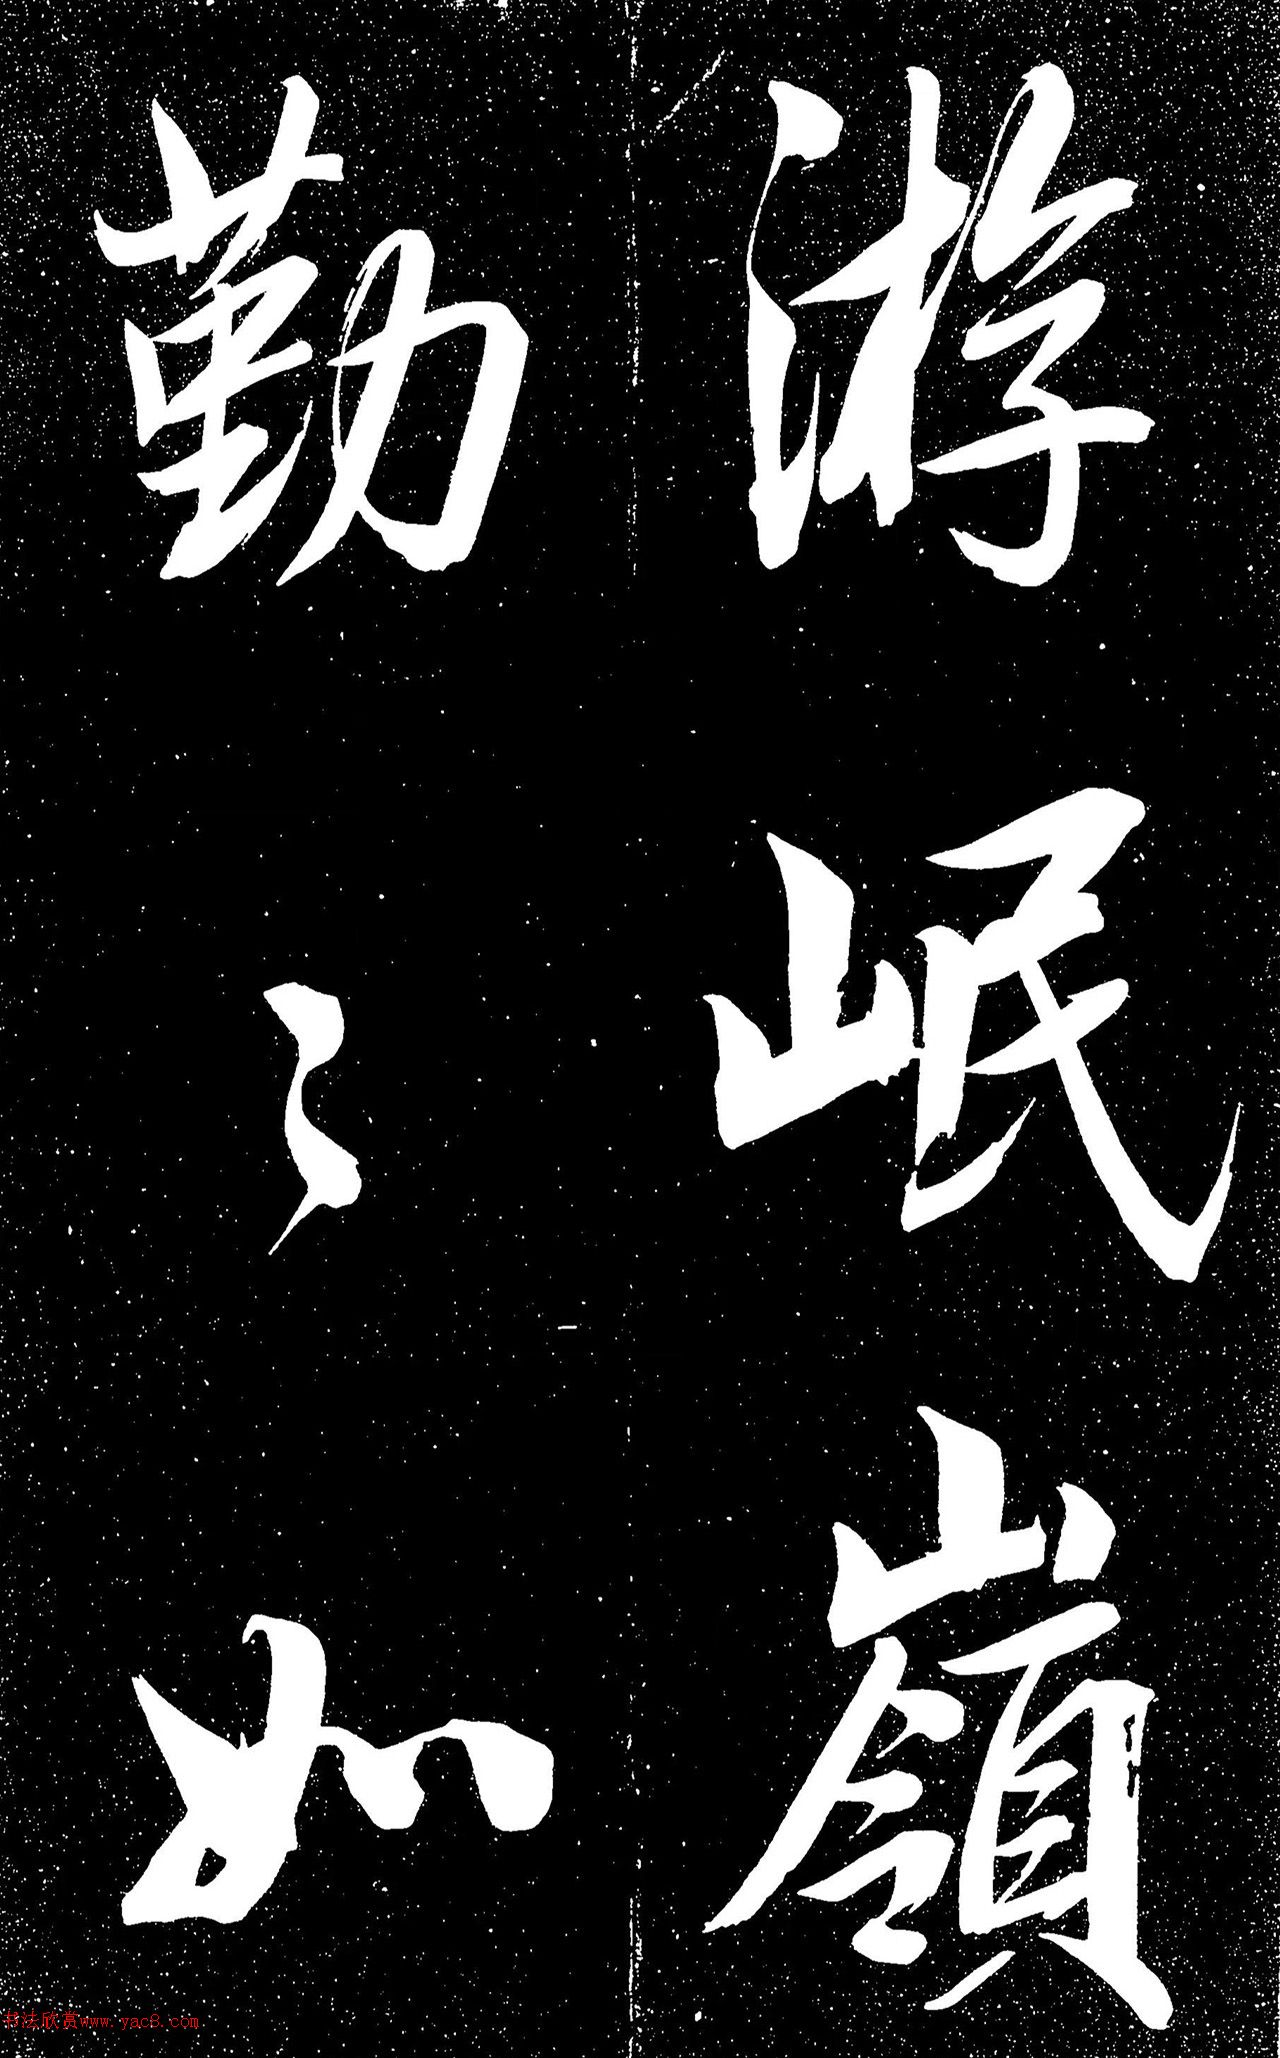 游岷嶺
勤〻如
书法欣赏www.yac8.com